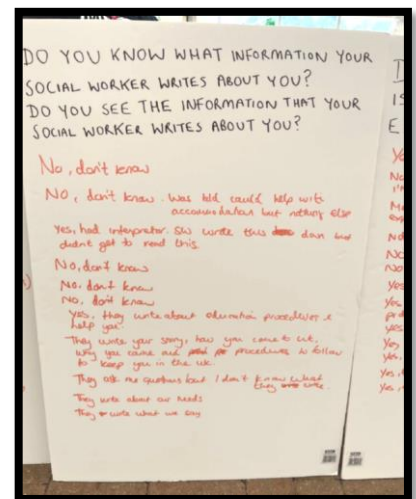 DO YOU KNOW WHAT INFORMATION YOUR
SOCIAL WORKER WRITES ABOUT YOU?
DO YOU SEE THE INFORMATION THAT YOUR
SOCIAL WORKER WRITES ABOUT YOU?
No, don't know
No, don't know. Was told could help with
accommodation but nothing else
Yes, had interpreter. SW wrote this down but
didnt get to read this.
No, don't know
No, don't know
No, don't know
Yes, they write about education procedures &
help you.
They write your story, how you came to UK,
why you came and procedures to follow
to keep you in the UK.
They ask me questions but I don't know what
they write.
They write about our needs
They write what we say
D
IS
E
Ye
No
I'm
No
No
No
Yes
Yes
Yes
Yes
Yes,
Yes,
Yes,